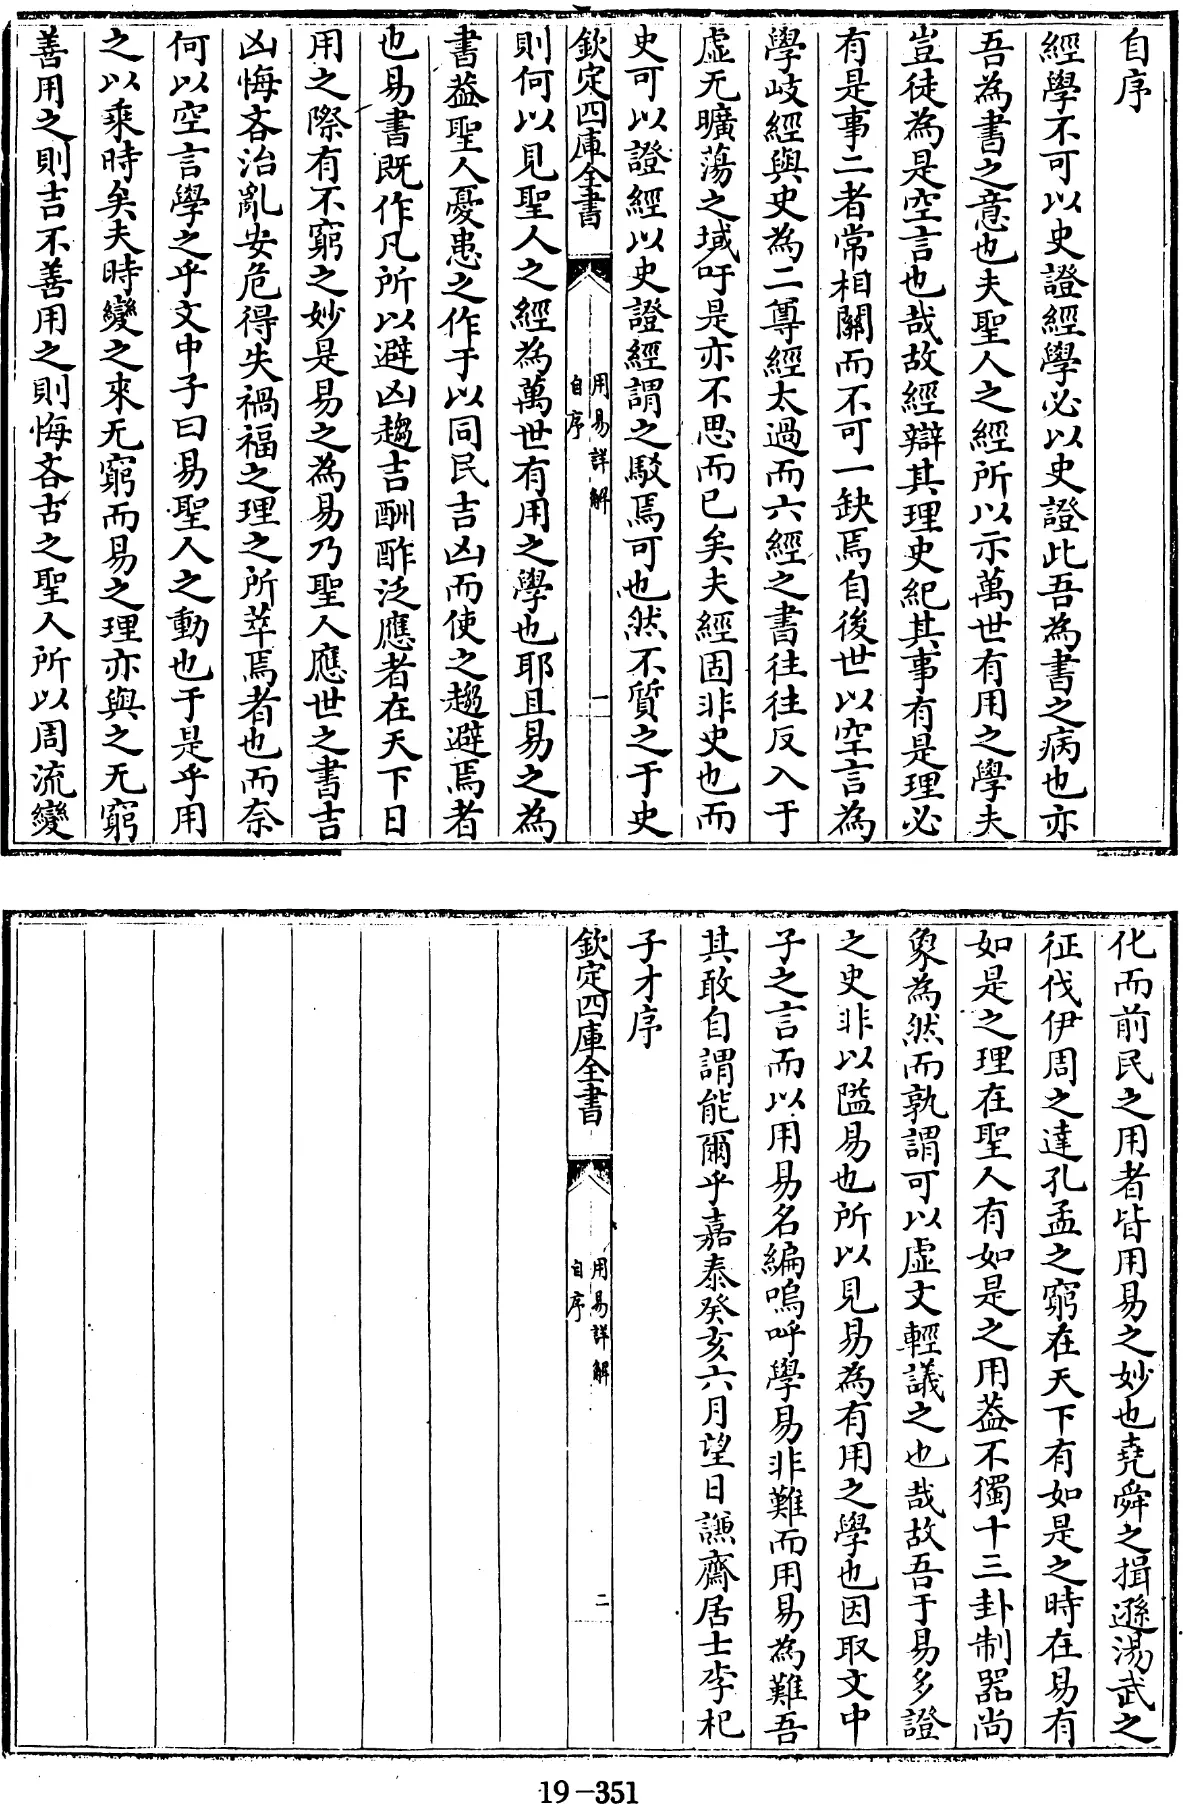 自序
經學不可以史證經學必以史證此吾為書之病也亦
吾為書之意也夫聖人之經所以示萬世有用之學夫
豈徒為是空言也哉故經辯其理史紀其事有是理必
有是事二者常相關而不可一缺焉自後世以空言為
學岐經與史為二尊經太過而六經之書往往反入于
虛无曠蕩之域吁是亦不思而已矣夫經固非史也而
史可以證經以史證經謂之駁焉可也然不質之于史
欽定四庫全書
用易詳解
自序
一
則何以見聖人之經為萬世有用之學也耶且易之為
書蓋聖人憂患之作于以同民吉凶而使之趨避焉者
也易書既作凡所以避凶趨吉酬酢泛應者在天下日
用之際有不窮之妙是易之為易乃聖人應世之書吉
凶悔吝治亂安危得失禍福之理之所萃焉者也而奈
何以空言學之乎文中子曰易聖人之動也于是乎用
之以乘時矣夫時變之來无窮而易之理亦與之无窮
善用之則吉不善用之則悔吝古之聖人所以周流變
化而前民之用者皆用易之妙也堯舜之揖遜湯武之
征伐伊周之達孔孟之窮在天下有如是之時在易有
如是之理在聖人有如是之用蓋不獨十三卦制器尚
象為然而孰謂可以虛文輕議之也哉故吾于易多證
之史非以隘易也所以見易為有用之學也因取文中
子之言而以用易名編嗚呼學易非難而用易為難吾
其敢自謂能爾乎嘉泰癸亥六月望日謙齋居士李杞
子才序
欽定四庫全書
用易詳解
自序
二
19-351